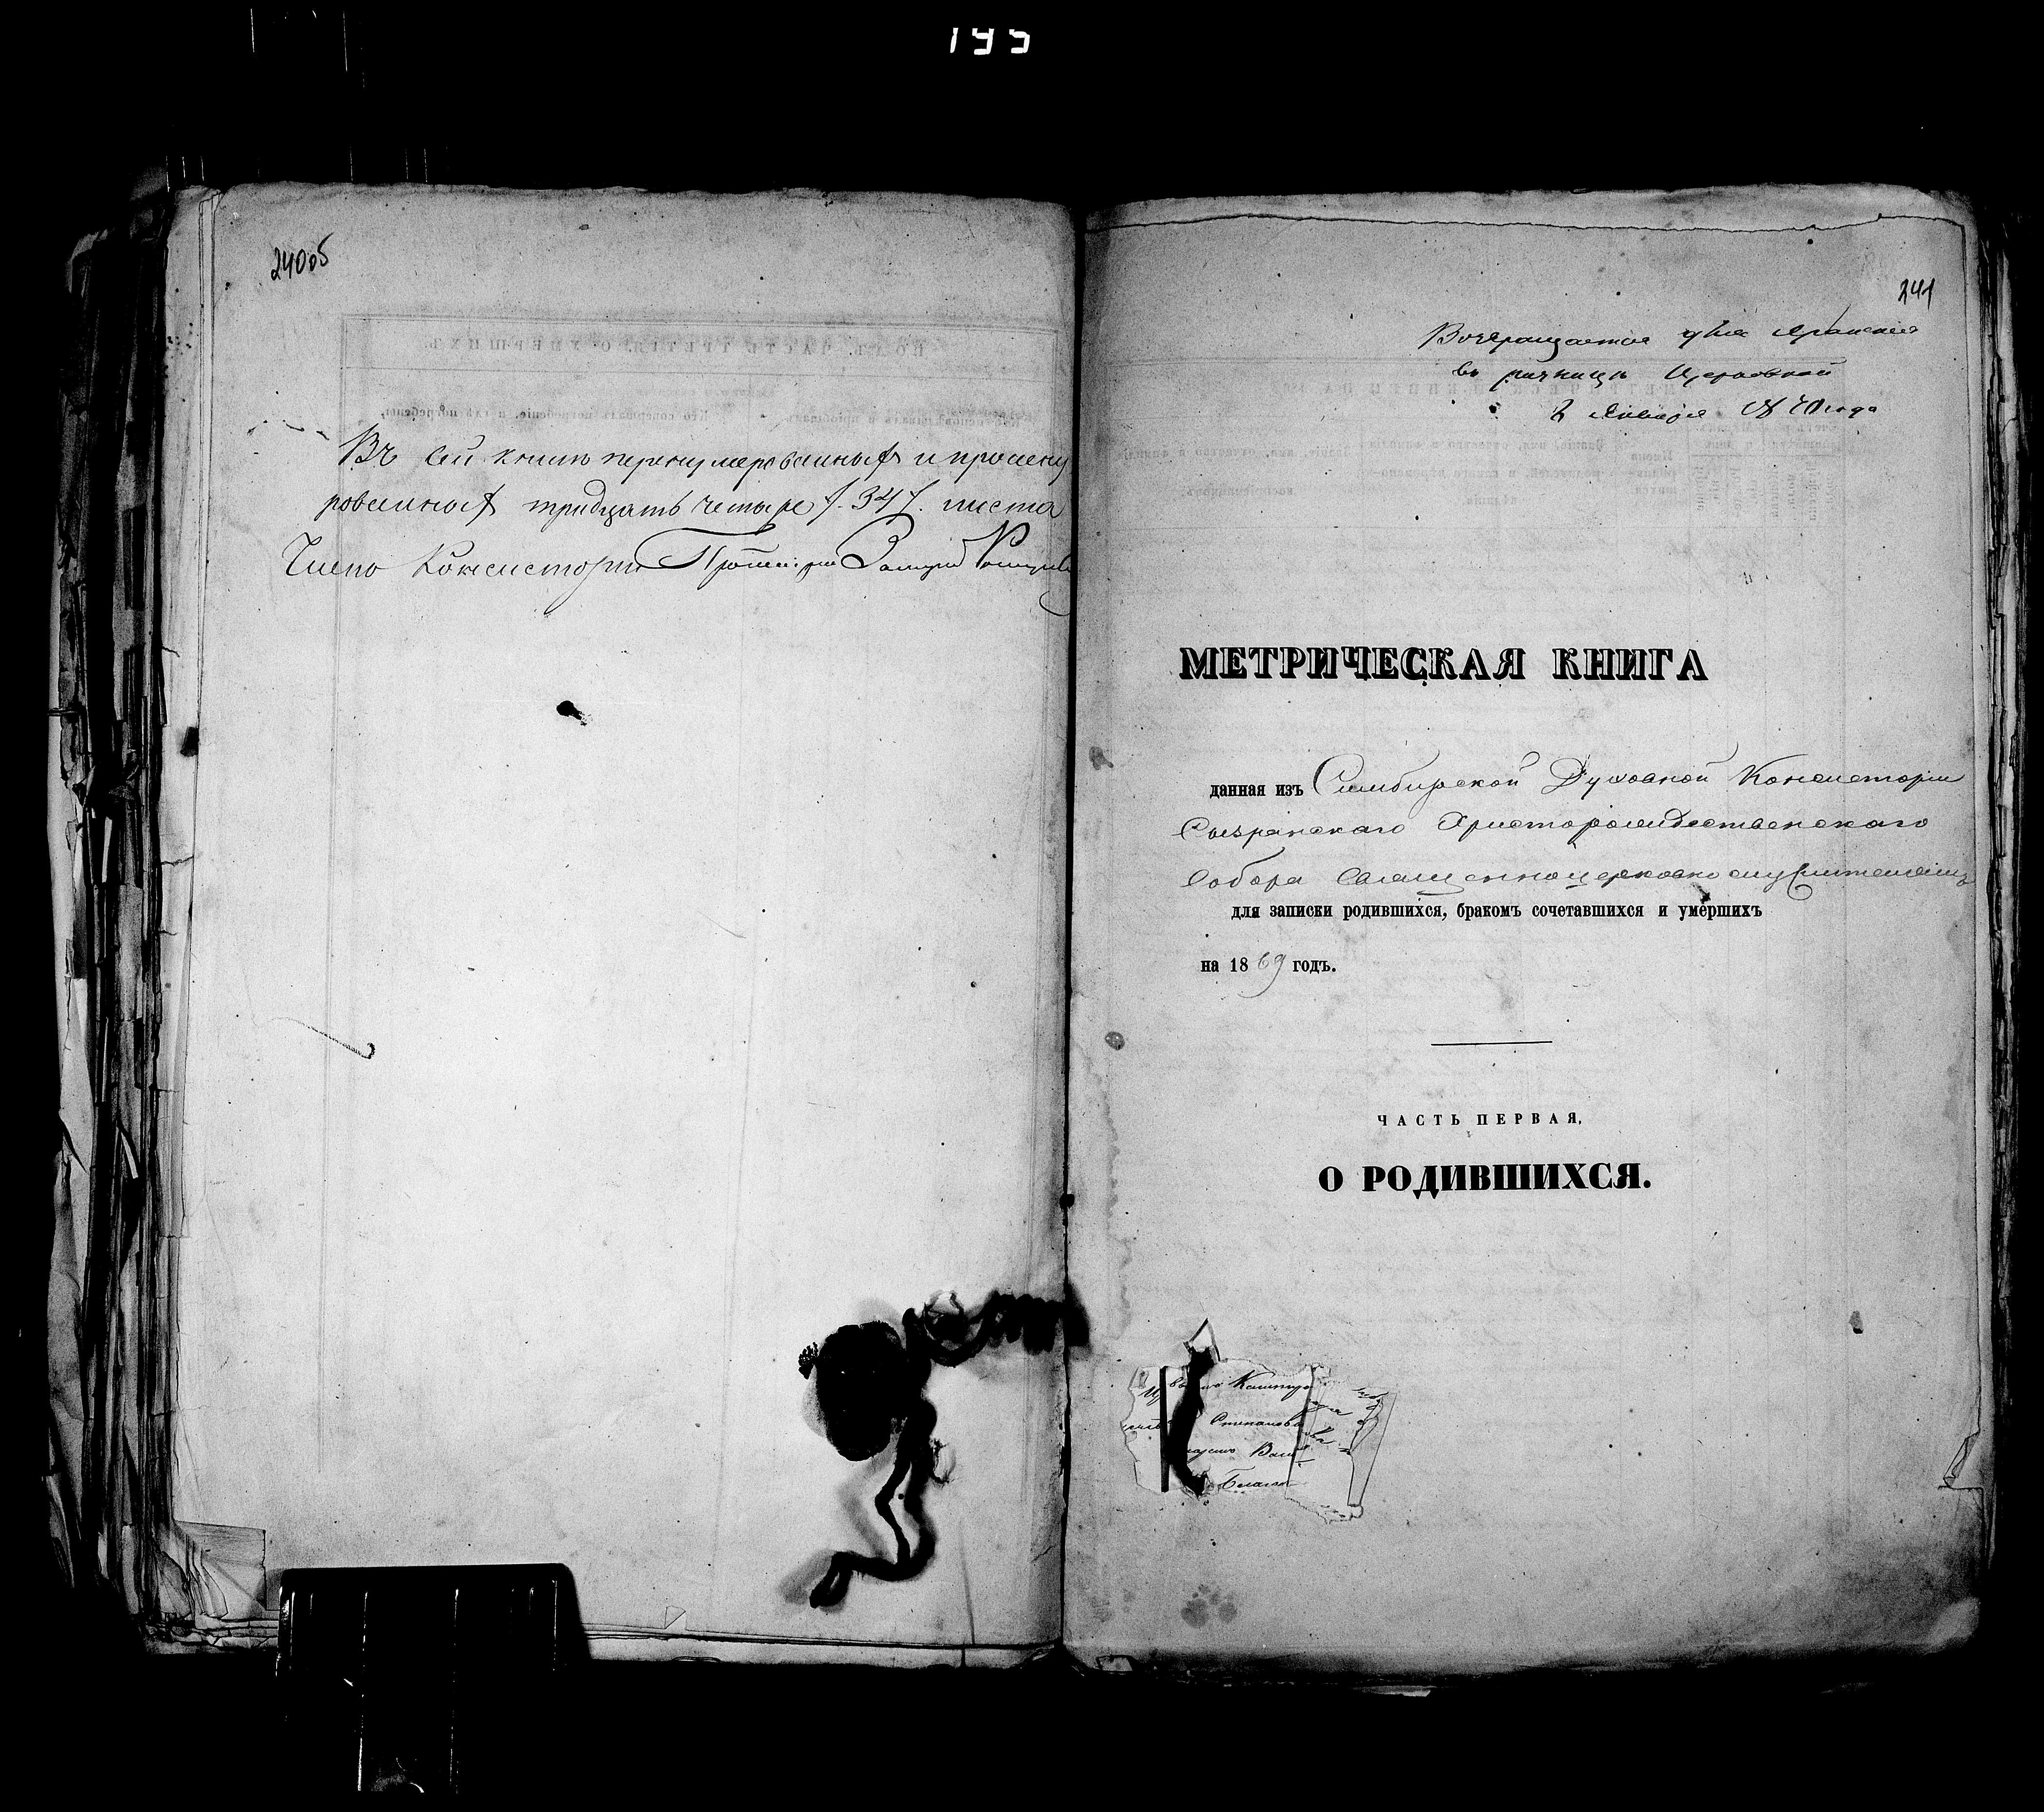 195
240об
Въ сей книгѣ перенумерованныхъ и прошну
рованныхъ тридцать четыре /34/. листа
Членъ Консисторіи
241
Возвращается для храненія
въ ризницѣ Церковной
Января 1870 года
МЕТРИЧЕСКАЯ КНИГА
данная изъ Симбирской Духовной Консисторіи
Сызранскаго Христорождественскаго
Собора Священноцерковнослужителямъ
для записки родившихся, бракомъ сочетавшихся и умершихъ
на 1869 годъ.
ЧАСТЬ ПЕРВАЯ,
О РОДИВШИХСЯ.